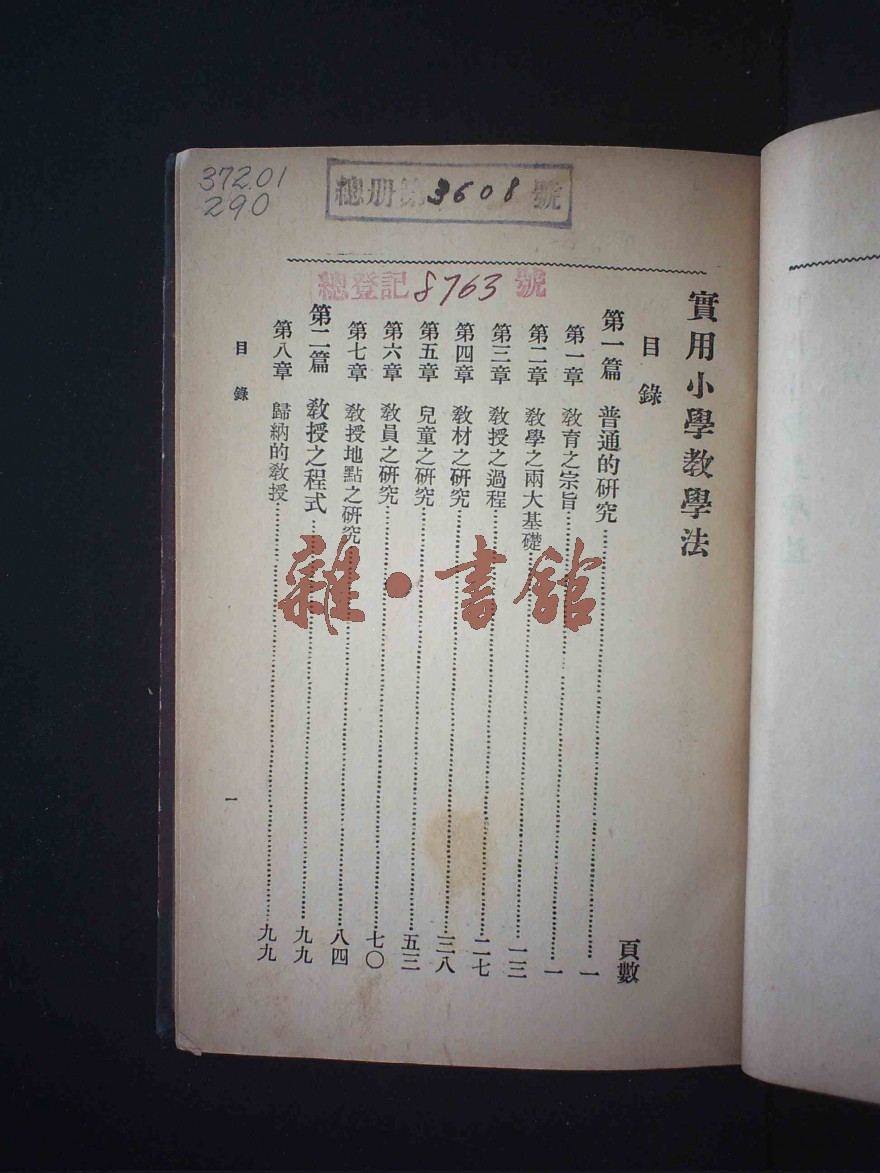 372.01
290
總册第3608號
總登記8763號
實用小學教學法
目錄
頁數
第一篇 普通的研究……一
第一章 教育之宗旨……一
第二章 教學之兩大基礎……一三
第三章 教授之過程……二七
第四章 教材之研究……三八
第五章 兒童之研究……五三
第六章 教員之研究……七〇
第七章 教授地點之研究……八四
第二篇 教授之程式……九九
第八章 歸納的教授……九九
目錄
一
雜·書館